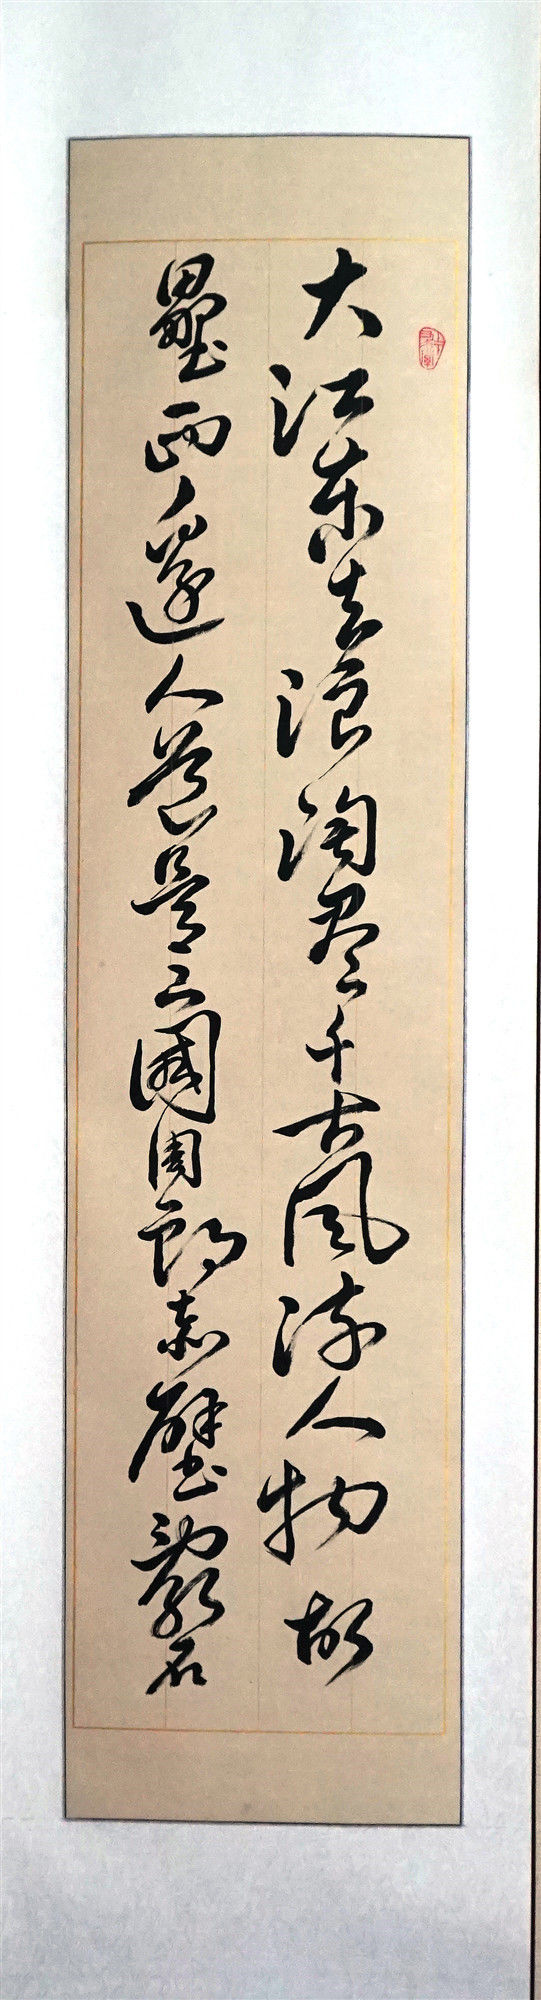 大江东去浪淘尽千古风流人物故
垒西边人道是三國周郎赤壁亂石